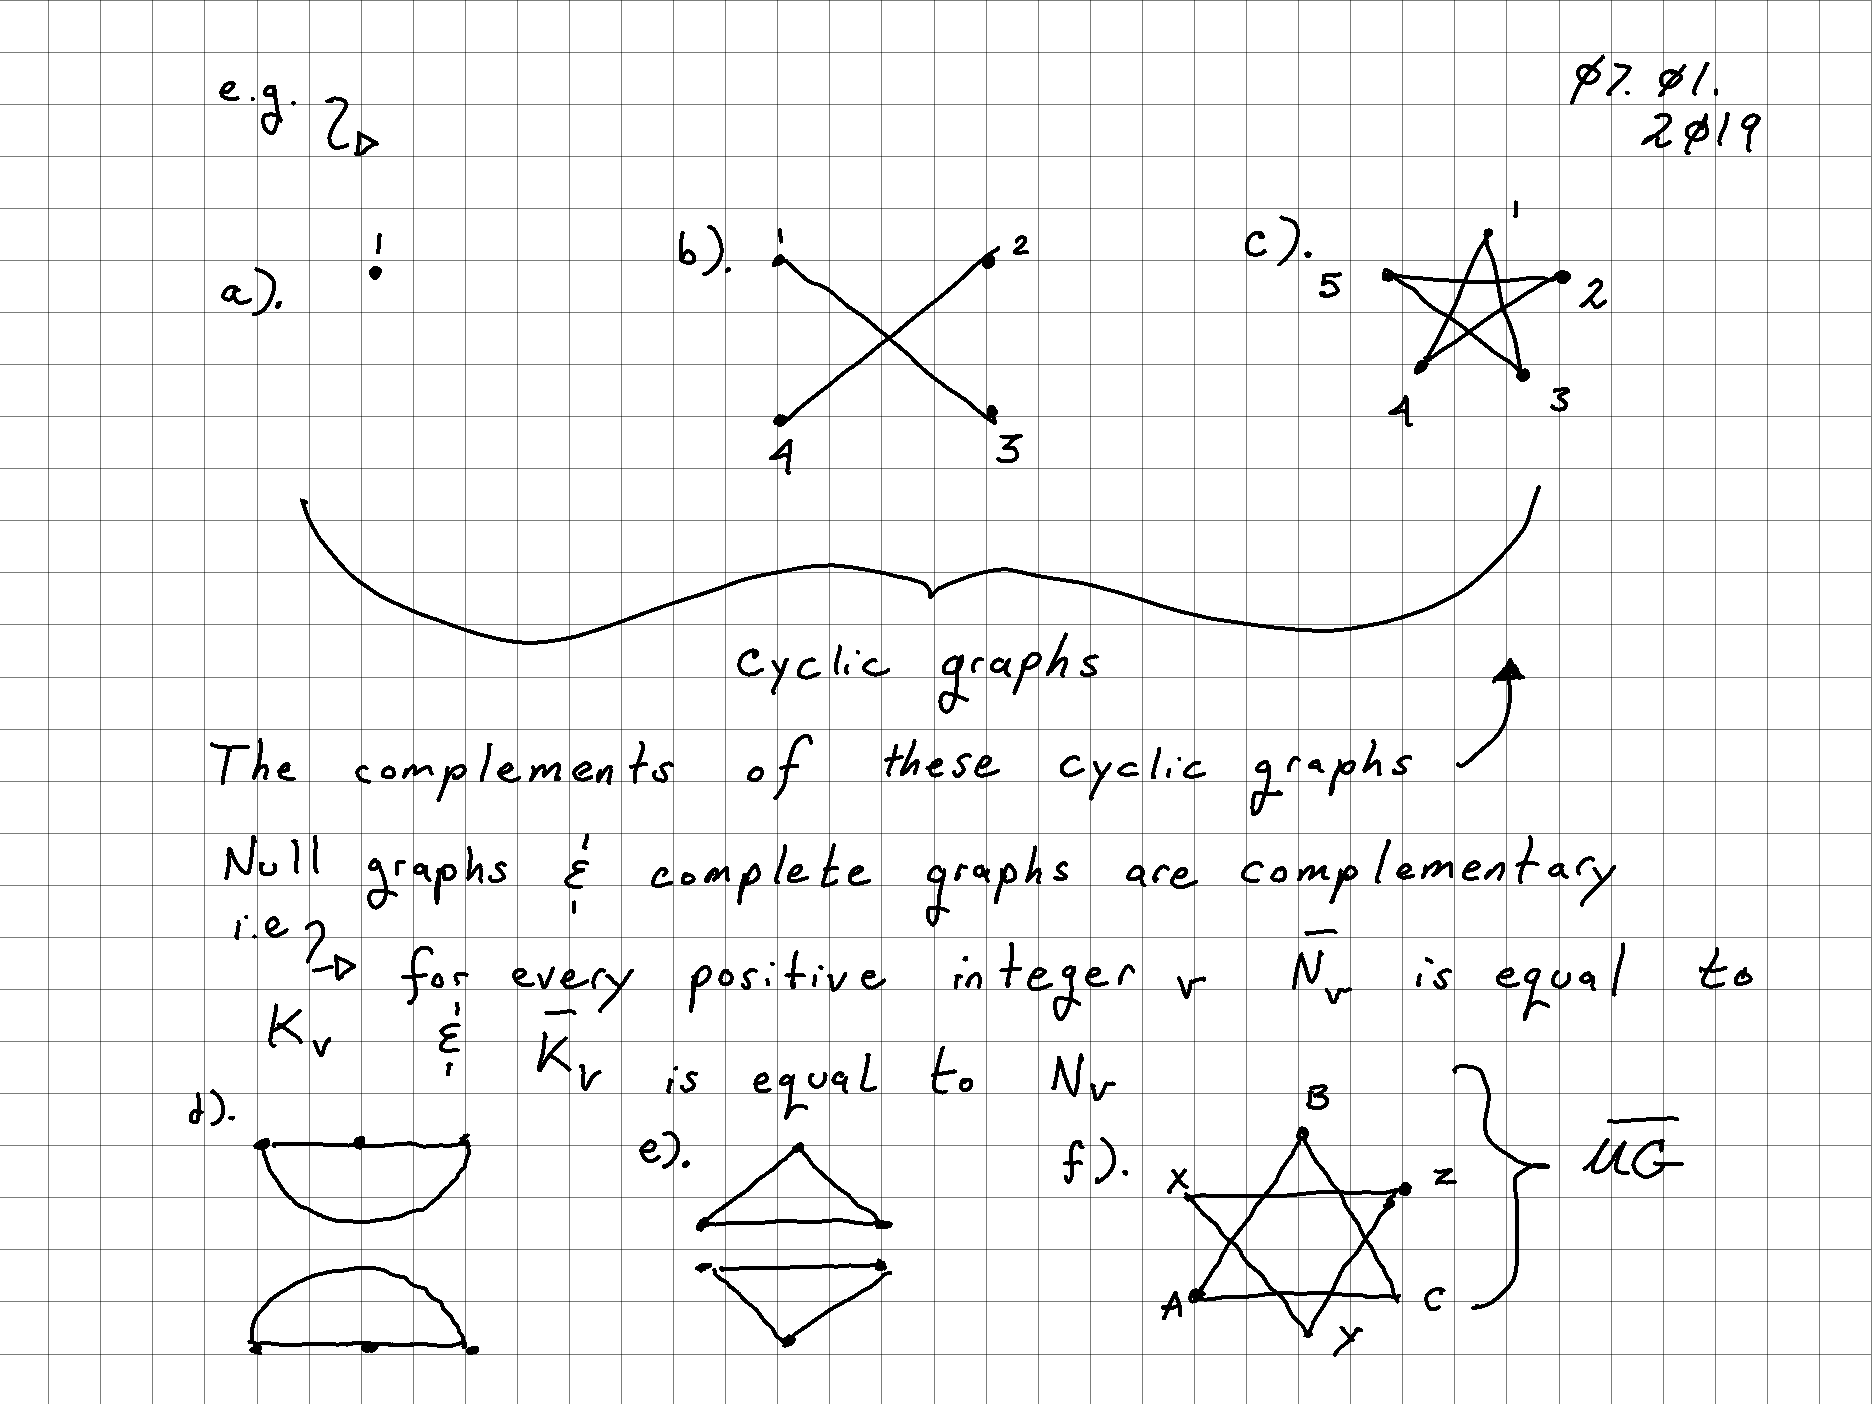 e.g.
Ø7. Ø1.
2Ø19
a).
1
b).
1
2
4
3
c).
1
5
2
4
3
Cyclic graphs
The complements of these cyclic graphs
Null graphs & complete graphs are complementary
i.e
for every positive integer v N̅ᵥ is equal to
Kᵥ & K̅ᵥ is equal to Nᵥ
d).
e).
f).
B
X
Z
A
C
Y